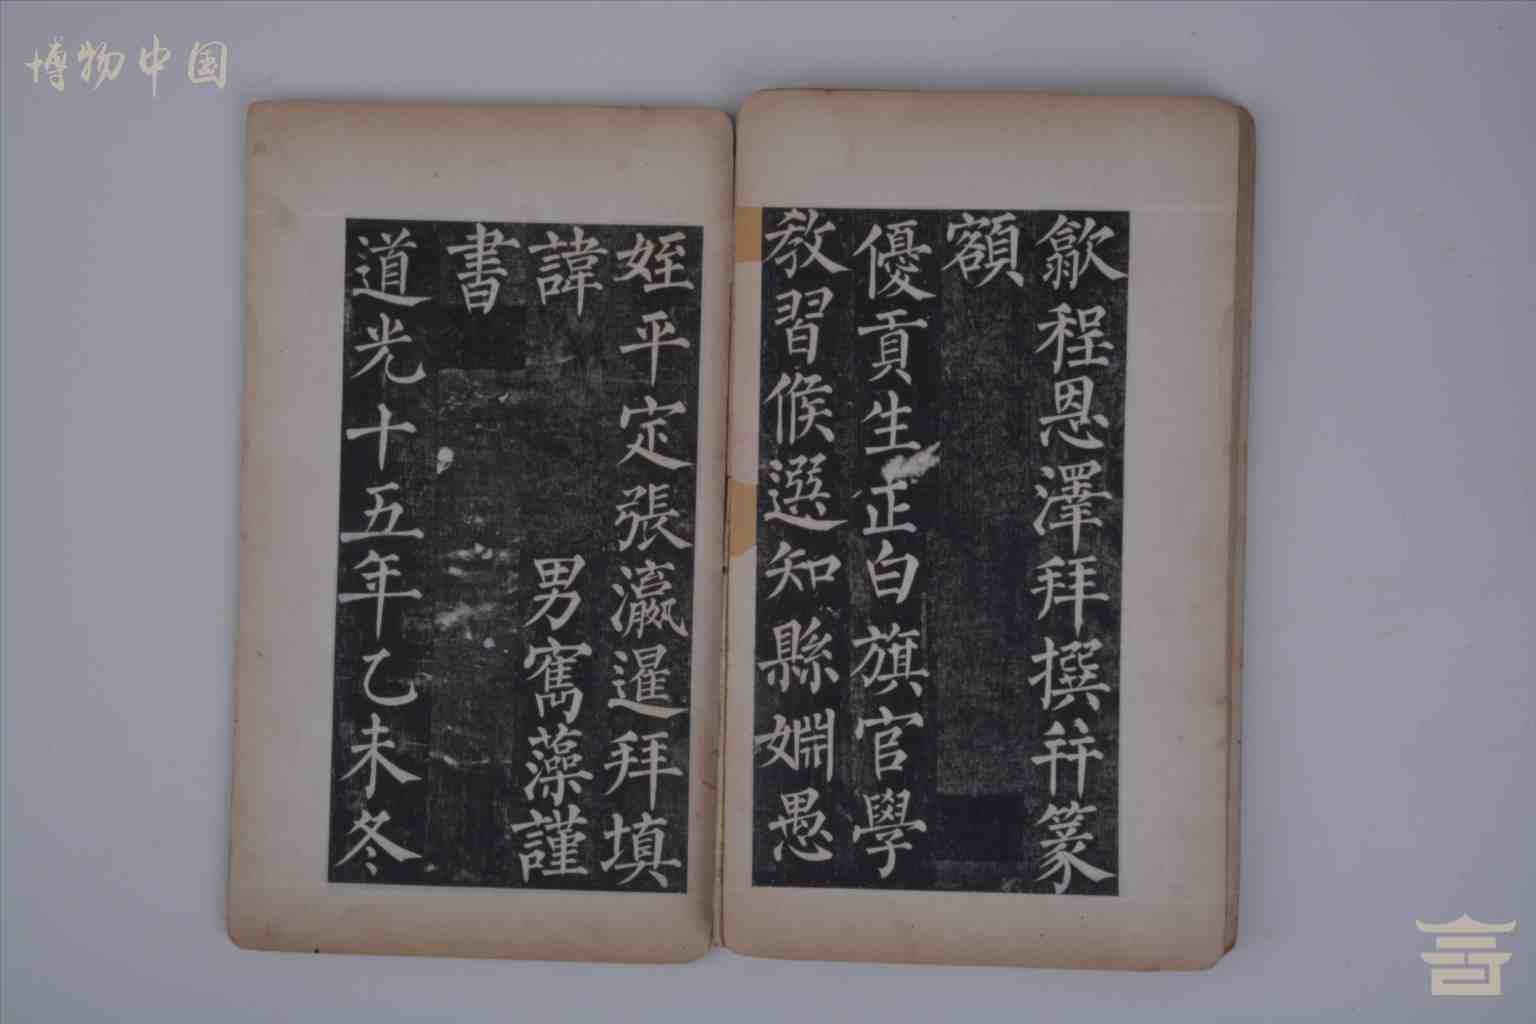 博物中国
歙程恩澤拜撰并篆
額
優貢生正白旗官學
教習候選知縣姻愚
姪平定張瀛暹拜填
諱 男寯藻謹
書
道光十五年乙未冬